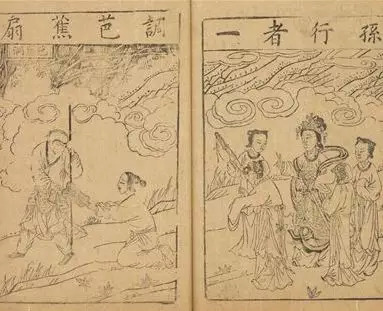 孫行者一
調芭蕉扇